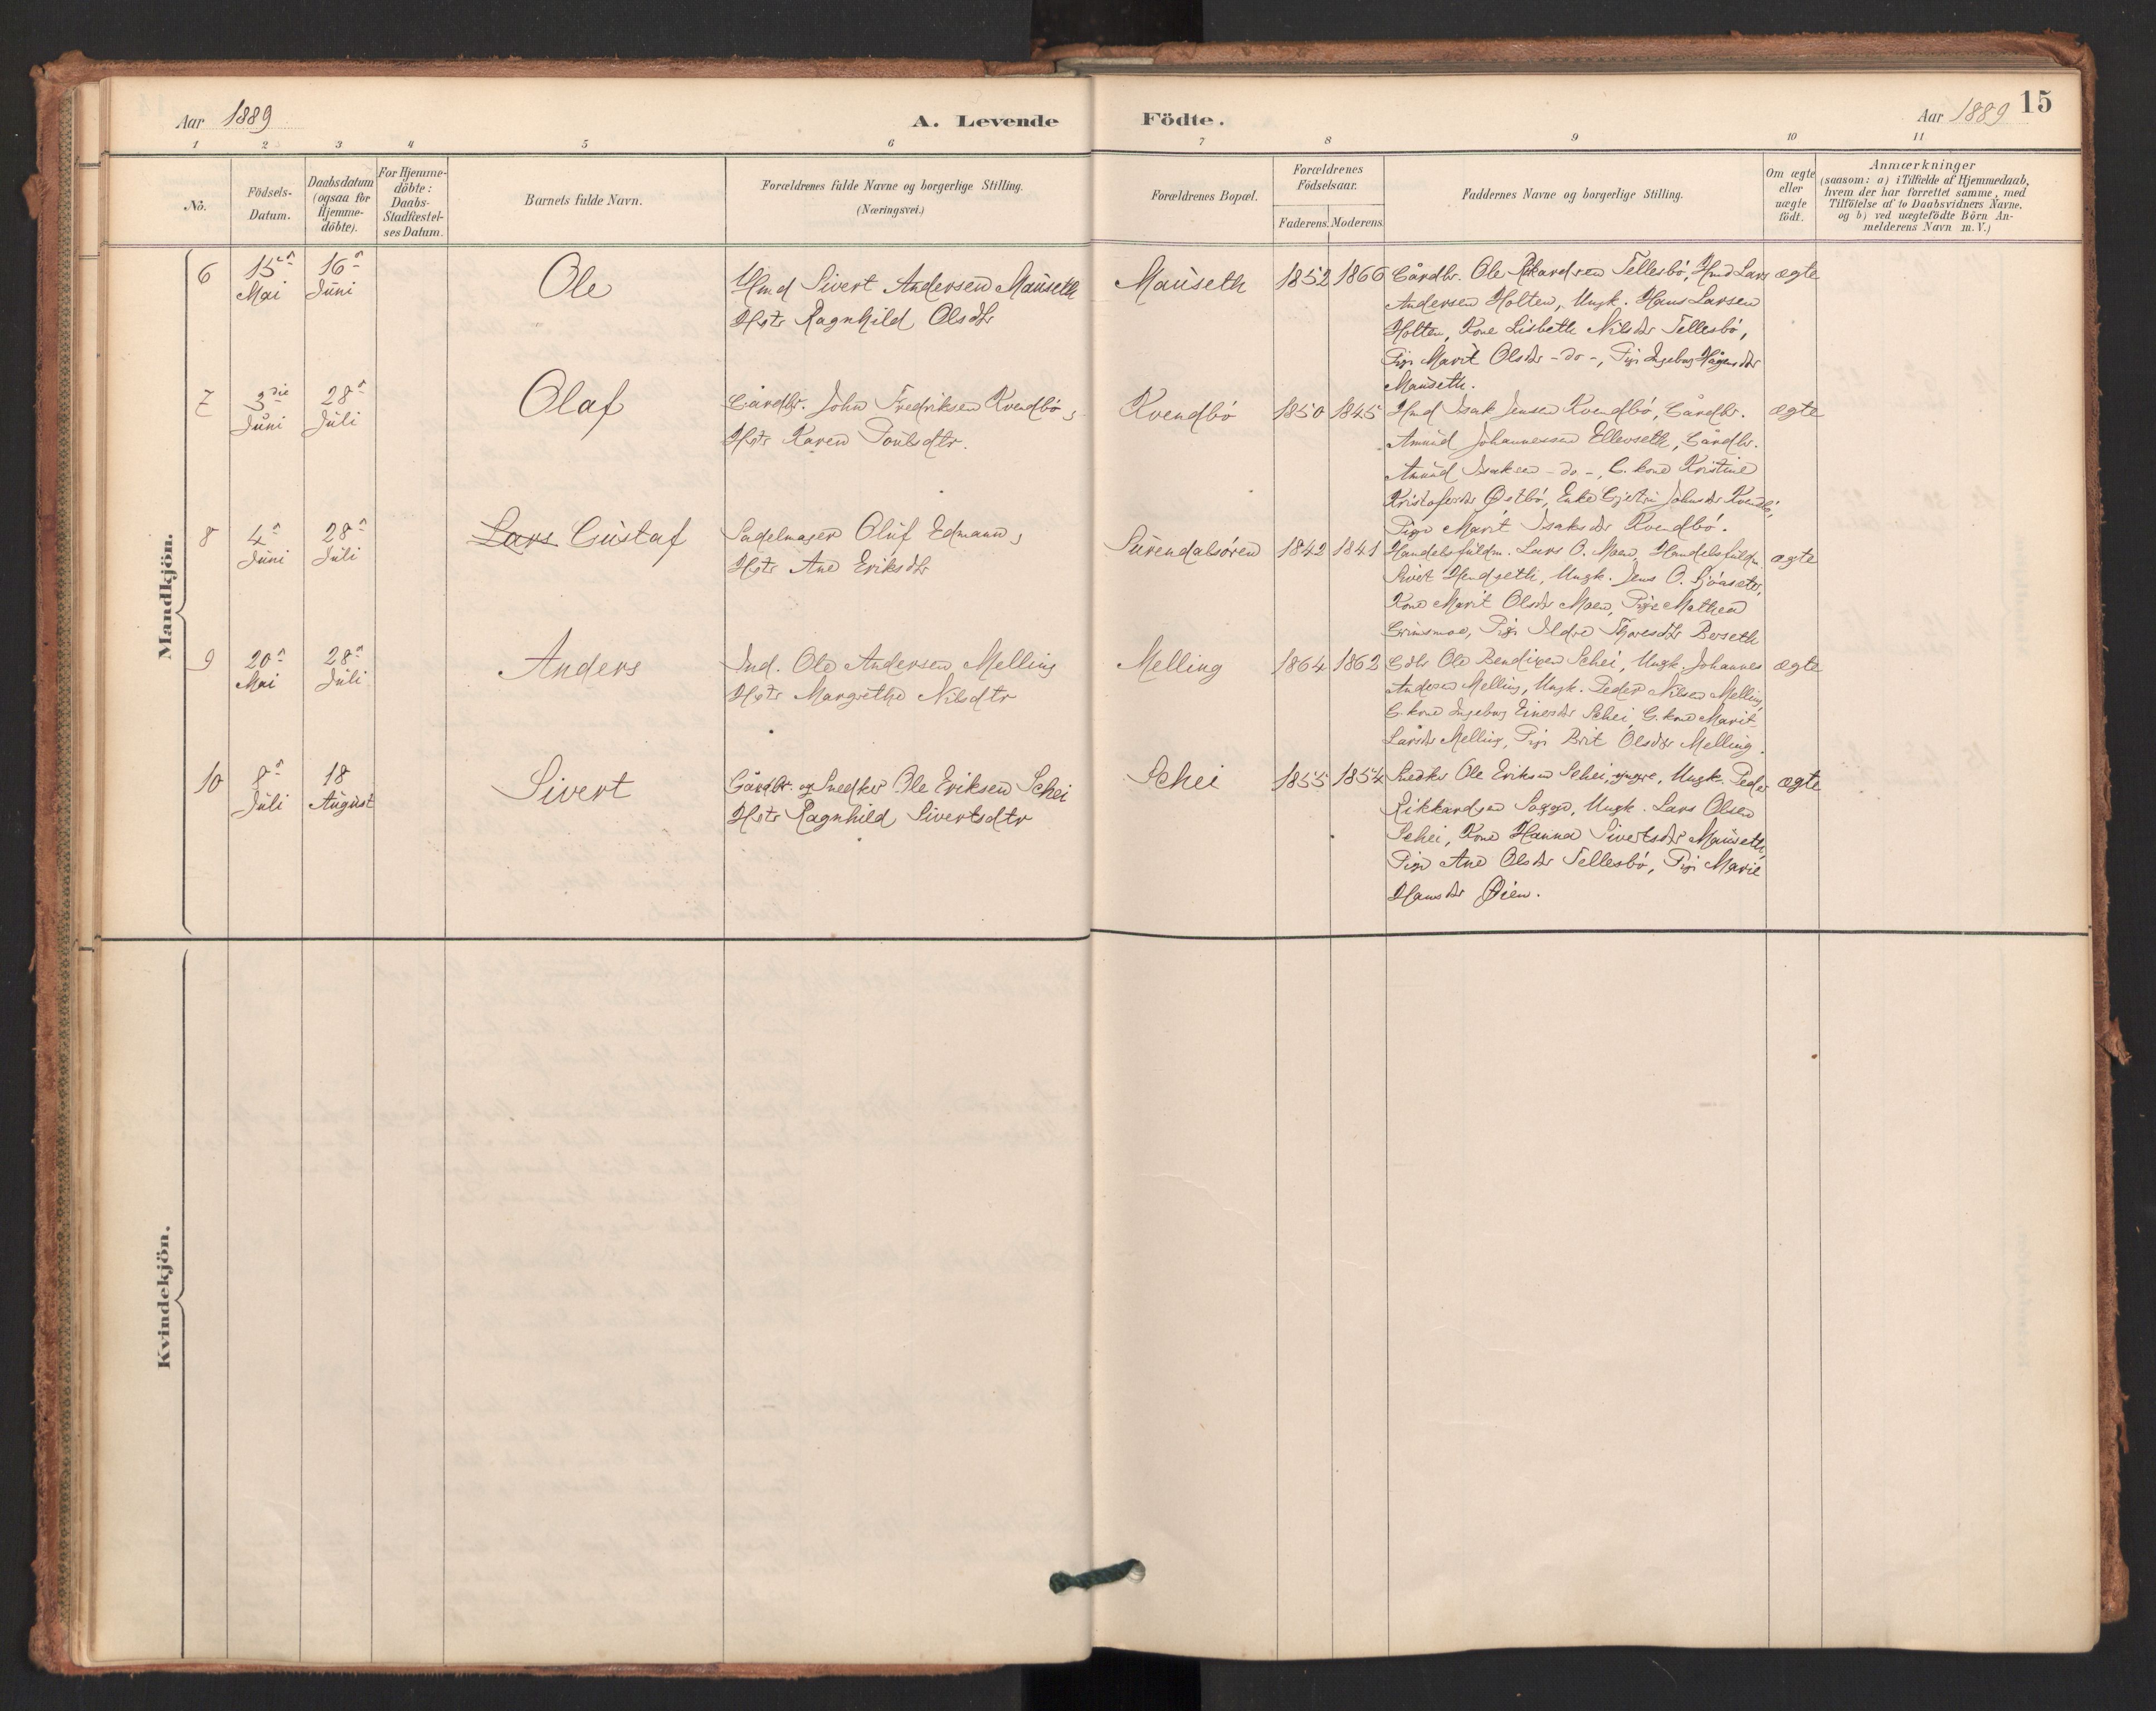 Aar 1889
A. Levende
Födte.
Aar 1889
15
1 2 3 4 5 6 7 8 9 10 11
No.
Födsels-
Datum.
Daabsdatum
(ogsaa for
Hjemme-
döbte).
For Hjemme-
döbte:
Daabs-
Stadfæstel-
ses Datum.
Barnets fulde Navn.
Forældrenes fulde Navne og borgerlige Stilling.
(Næringsvei.)
Forældrenes Bopæl.
Forældrenes
Födselsaar.
Faderens. Moderens.
Faddernes Navne og borgerlige Stilling.
Om ægte
eller
uægte
födt.
Anmærkninger
(saasom: a) i Tilfælde af Hjemmedaab,
hvem der har forrettet samme, med
Tilföielse af to Daabsvidners Navne,
og b) ved uægtefödte Börn An-
melderens Navn m. V.)
Mandkjön.
6
15
Mai
16
Juni
Ole
Hmd Sivert Andersen Mauseth
Hstr Ragnhild Olsdtr
Mauseth
1852 1866
Gårdbr. Ole Rikardsen Tellesbö, Hmd Lars
Andersen Holten, Ungk. Hans Larsen
Holten, Kone Lisbeth Nilsdtr Tellesbö,
Pige Marit Olsdtr - do -, Pige Ingeborg Hågensdtr
Mauseth.
ægte
7
3die
Juni
28
Juli
Olaf
Gårdbr. John Fredriksen Kvendbö,
Hstr Karen Poulsdtr.
Kvendbö
1850 1845
Hmd Isak Jensen Kvendbö, Gårdbr.
Amund Johannessen Ellevseth, Gårdbr.
Amund Isaksen - do -, G. kone Kristine
Kristofersdtr Østbö, Enke Gjetrü Johnsdtr Kvendbö,
Pige Marit Isaksdtr Kvendbö.
ægte
8
4
Juni
28
Juli
Lars Gustaf
Sadelmager Oluf Edmann,
Hstr Ane Eriksdtr
Surendalsören
1842 1841
Handelsfuldm. Lars O. Moen, Handelsfuldm.
Sivert Hendseth, Ungk. Jens O. Sjöaseter,
Kone Marit Olsdtr Moen, Pige Mathea
Grimsmoe, Pige Ildre Thoresdtr Berseth
ægte
9
20
Mai
28
Juli
Anders
Ind. Ole Andersen Melling
Hstr Margrethe Nilsdtr
Melling
1864 1862
Gdbr Ole Bendixen Schei, Ungk. Johannes
Andersen Melling, Ungk. Peder Nilsen Melling,
G. kone Ingeborg Einersdtr Schei, G. kone Marit
Larsdtr Melling, Pige Brit Olsdtr Melling.
ægte
10
8
Juli
18
August
Sivert
Gårdbr. og Snedker Ole Eriksen Schei
Hstr Ragnhild Sivertsdtr
Schei
1855 1854
Snedker Ole Eriksen Schei, yngre, Ungk. Peder
Rikkardsen Sogge, Ungk. Lars Olsen
Schei, Kone Hanna Sivertsdtr Mauseth,
Pige Ane Olsdtr Tellesbö, Pige Marie
Hansdtr Øien.
ægte
Kvindekjön.